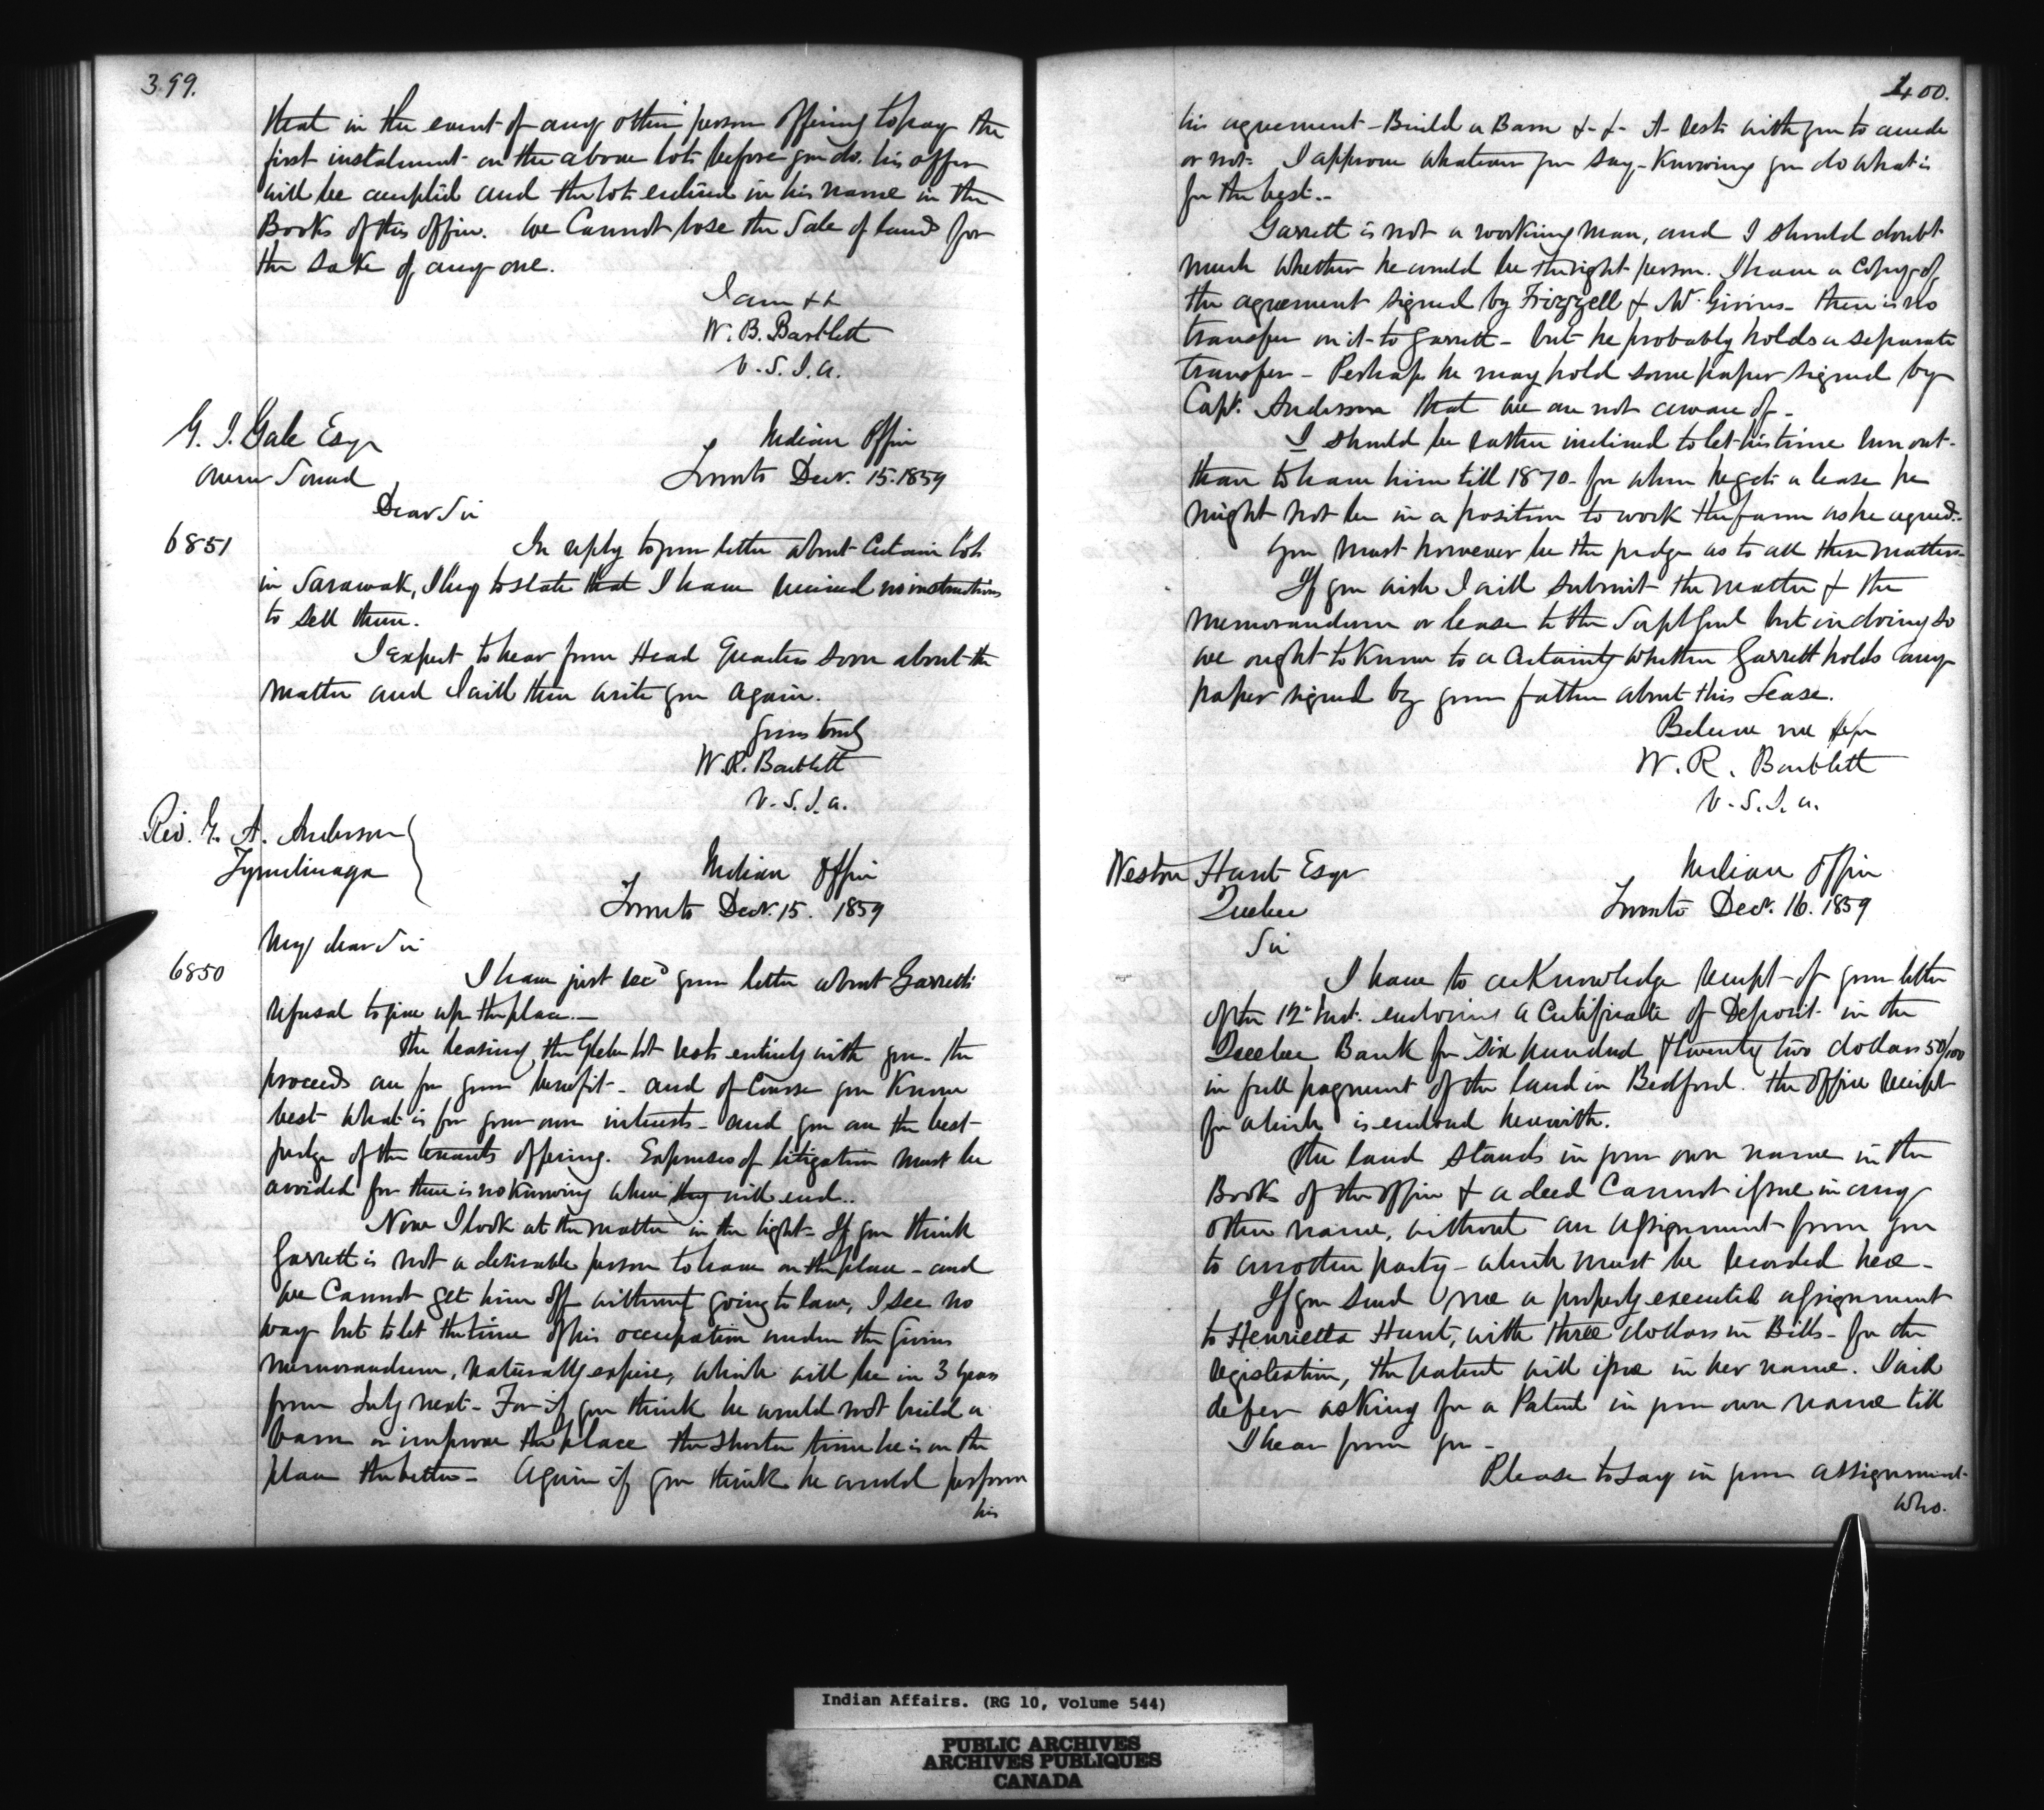 399.
that in the event of any other person offering to pay the
first instalment on the above lots before you do, his offer
will be accepted and the lots entered in his name in the
Books of this office. We Cannot lose the Sale of lands for
the sake of any one.
I am &&
W. B. Bartlett
V. S. I. A.
G. I. Gale Esqr
Owen Sound
Indian Office
Toronto Decr. 15. 1859
Dear Sir
6851
In reply to your letter about Certain lots
in Sarawak, I beg to state that I have received no instructions
to sell them.
I expect to hear from Head Quarters soon about the
matter and I will then write you again.
Yours truly
W. R. Bartlett
V. S. I. A.
Rev. G. A. Anderson
Tyendinaga
Indian Office
Toronto Decr. 15. 1859
My dear Sir
6850
I have just recd your letter about Garretts
refusal to give up the place.—
The leasing the Glebe lot rests entirely with you - the
proceeds are for your benefit - and of Course you Know
best what is for your own interests - and you are the best
judge of the tenants offering. Expenses of litigation must be
avoided for there is no knowing where they will end..
Now I look at the matter in the light - If you think
Garrett is not a desirable person to have on the place - and
we Cannot get him off without going to law, I see no
way but to let the time of his occupation under the Givins
memorandum, naturally expire, which will be in 3 years
from July next - For if you think he would not build a
barn or improve the place the shorter time he is on the
place the better - Again if you think he would perform
his
400.
his agreement - Build a Barn &-&- it rests with you to accede
or not - I approve whatever you say, - Knowing you do what is
for the best..
Garrett is not a working man, and I should doubt
much whether he would be the right person. I have a Copy of
the agreement signed by Frizzell & Mr Givins - there is no
transfer on it to Garrett - but he probably holds a separate
transfer - Perhaps he may hold some paper signed by
Capt. Anderson that we are not aware of -
I should be rather inclined to let his time run out -
than to have him till 1870 - for when he gets a lease he
might not be in a position to work the farm as he agreed.-
You must however be the judge as to all these matters -
If you wish I will submit the matter & the
memorandum or lease to the Supt Genl but in doing so
we ought to know to a Certainty whether Garrett holds any
paper signed by your father about this Lease.
Believe me
W. R. Bartlett
V. S. I. A.
Weston Hunt Esqr
Quebec
Indian Office
Toronto Decr. 16. 1859
Sir
I have to acKnowledge receipt of your letter
of the 12th Inst. enclosing a Certificate of Deposit in the
Quebec Bank for Six hundred & twenty two dollars 50/100
in full payment of the land in Bedford. The office receipt
for which is enclosed herewith.
The land stands in your own name in the
Books of the office & a deed Cannot issue in any
other name, without an assignment from you
to another party - which must be recorded here -
If you send me a properly executed assignment
to Henrietta Hunt, with three dollars in Bills - for the
registration, the patent will issue in her name. I will
defer asKing for a Patent in your own name till
I hear from you -
Please to say in your assignment
who.
Indian Affairs. (RG 10, Volume 544)
PUBLIC ARCHIVES
ARCHIVES PUBLIQUES
CANADA